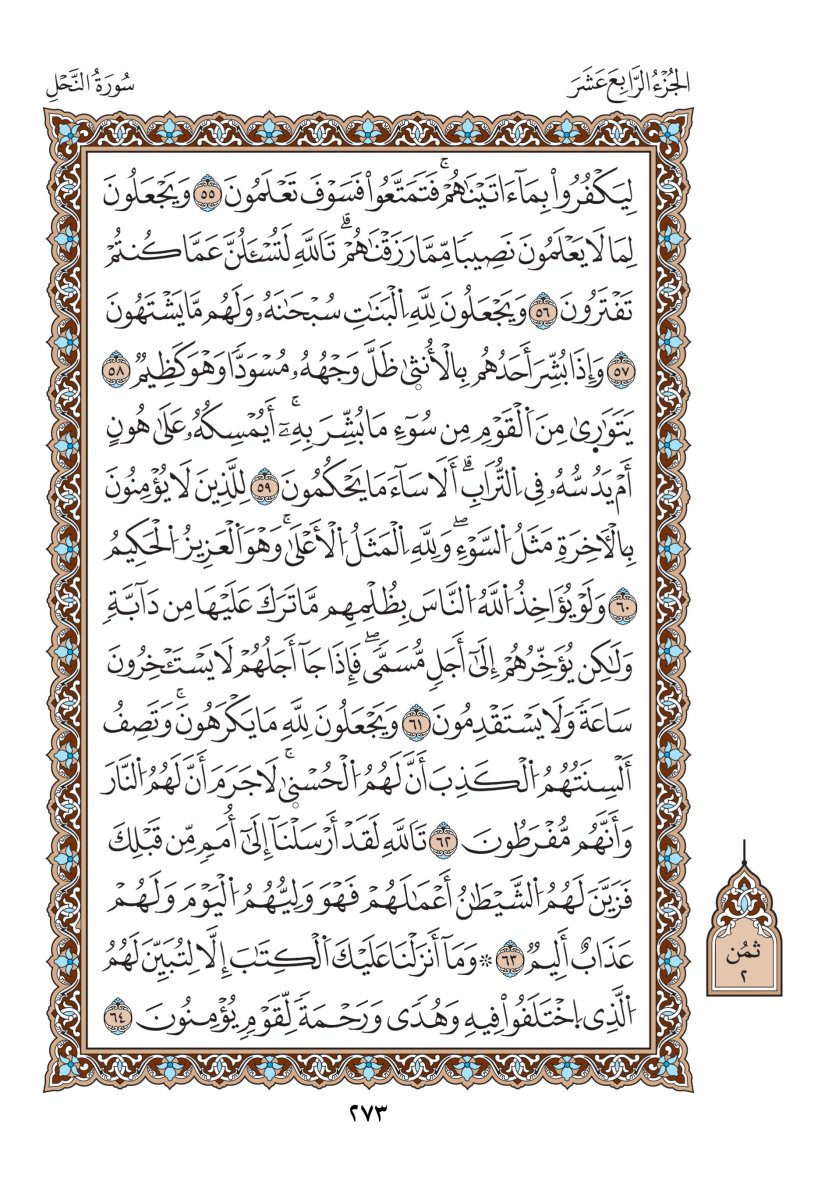 الجُزْءُ الرَّابِعَ عَشَرَ
سُورَةُ النَّحْلِ
لِيَكْفُرُواْ بِمَآ ءَاتَيْنَٰهُمْۚ فَتَمَتَّعُواْ فَسَوْفَ تَعْلَمُونَ ٥٥ وَيَجْعَلُونَ
لِمَا لَا يَعْلَمُونَ نَصِيبٗا مِّمَّا رَزَقْنَٰهُمْۗ تَاللَّهِ لَتُسْـَٔلُنَّ عَمَّا كُنتُمْ
تَفْتَرُونَ ٥٦ وَيَجْعَلُونَ لِلَّهِ اِ۬لْبَنَٰتِ سُبْحَٰنَهُۥ وَلَهُم مَّا يَشْتَهُونَ
٥٧ وَإِذَا بُشِّرَ أَحَدُهُم بِالْأُنث۪ىٰ ظَلَّ وَجْهُهُۥ مُسْوَدّٗا وَهْوَ كَظِيمٞ ٥٨
يَتَوَٰر۪ىٰ مِنَ اَ۬لْقَوْمِ مِن سُوٓءِ مَا بُشِّرَ بِهِۦٓۚ أَيُمْسِكُهُۥ عَلَىٰ هُونٍ
أَمْ يَدُسُّهُۥ فِي اِ۬لتُّرَابِۗ أَلَا سَآءَ مَا يَحْكُمُونَ ٥٩ لِلَّذِينَ لَا يُؤْمِنُونَ
بِالْأٓخِرَةِ مَثَلُ اُ۬لسَّوْءِۖ وَلِلَّهِ اِ۬لْمَثَلُ اُ۬لْأَعْلَىٰۚ وَهْوَ اَ۬لْعَزِيزُ اُ۬لْحَكِيمُ
٦٠ وَلَوْ يُؤَاخِذُ اُ۬للَّهُ اُ۬لنَّاسَ بِظُلْمِهِم مَّا تَرَكَ عَلَيْهَا مِن دَآبَّةٖ
وَلَٰكِن يُؤَخِّرُهُمْ إِلَىٰٓ أَجَلٖ مُّسَمّٗىۖ فَإِذَا جَآ أَجَلُهُمْ لَا يَسْتَـْٔخِرُونَ
سَاعَةٗ وَلَا يَسْتَقْدِمُونَ ٦١ وَيَجْعَلُونَ لِلَّهِ مَا يَكْرَهُونَۚ وَتَصِفُ
أَلْسِنَتُهُمُ اُ۬لْكَذِبَ أَنَّ لَهُمُ اُ۬لْحُسْن۪ىٰۚ لَا جَرَمَ أَنَّ لَهُمُ اُ۬لنَّارَ
وَأَنَّهُم مُّفْرَطُونَ ٦٢ تَاللَّهِ لَقَدْ أَرْسَلْنَآ إِلَىٰٓ أُمَمٖ مِّن قَبْلِكَ
فَزَيَّنَ لَهُمُ اُ۬لشَّيْطَٰنُ أَعْمَٰلَهُمْ فَهْوَ وَلِيُّهُمُ اُ۬لْيَوْمَ وَلَهُمْ
عَذَابٌ أَلِيمٞ ٦٣ ۞ وَمَآ أَنزَلْنَا عَلَيْكَ اَ۬لْكِتَٰبَ إِلَّا لِتُبَيِّنَ لَهُمُ
اُ۬لَّذِي اِ۪خْتَلَفُواْ فِيهِ وَهُدٗى وَرَحْمَةٗ لِّقَوْمٖ يُؤْمِنُونَ ٦٤
ثمُن
٢
٢٧٣